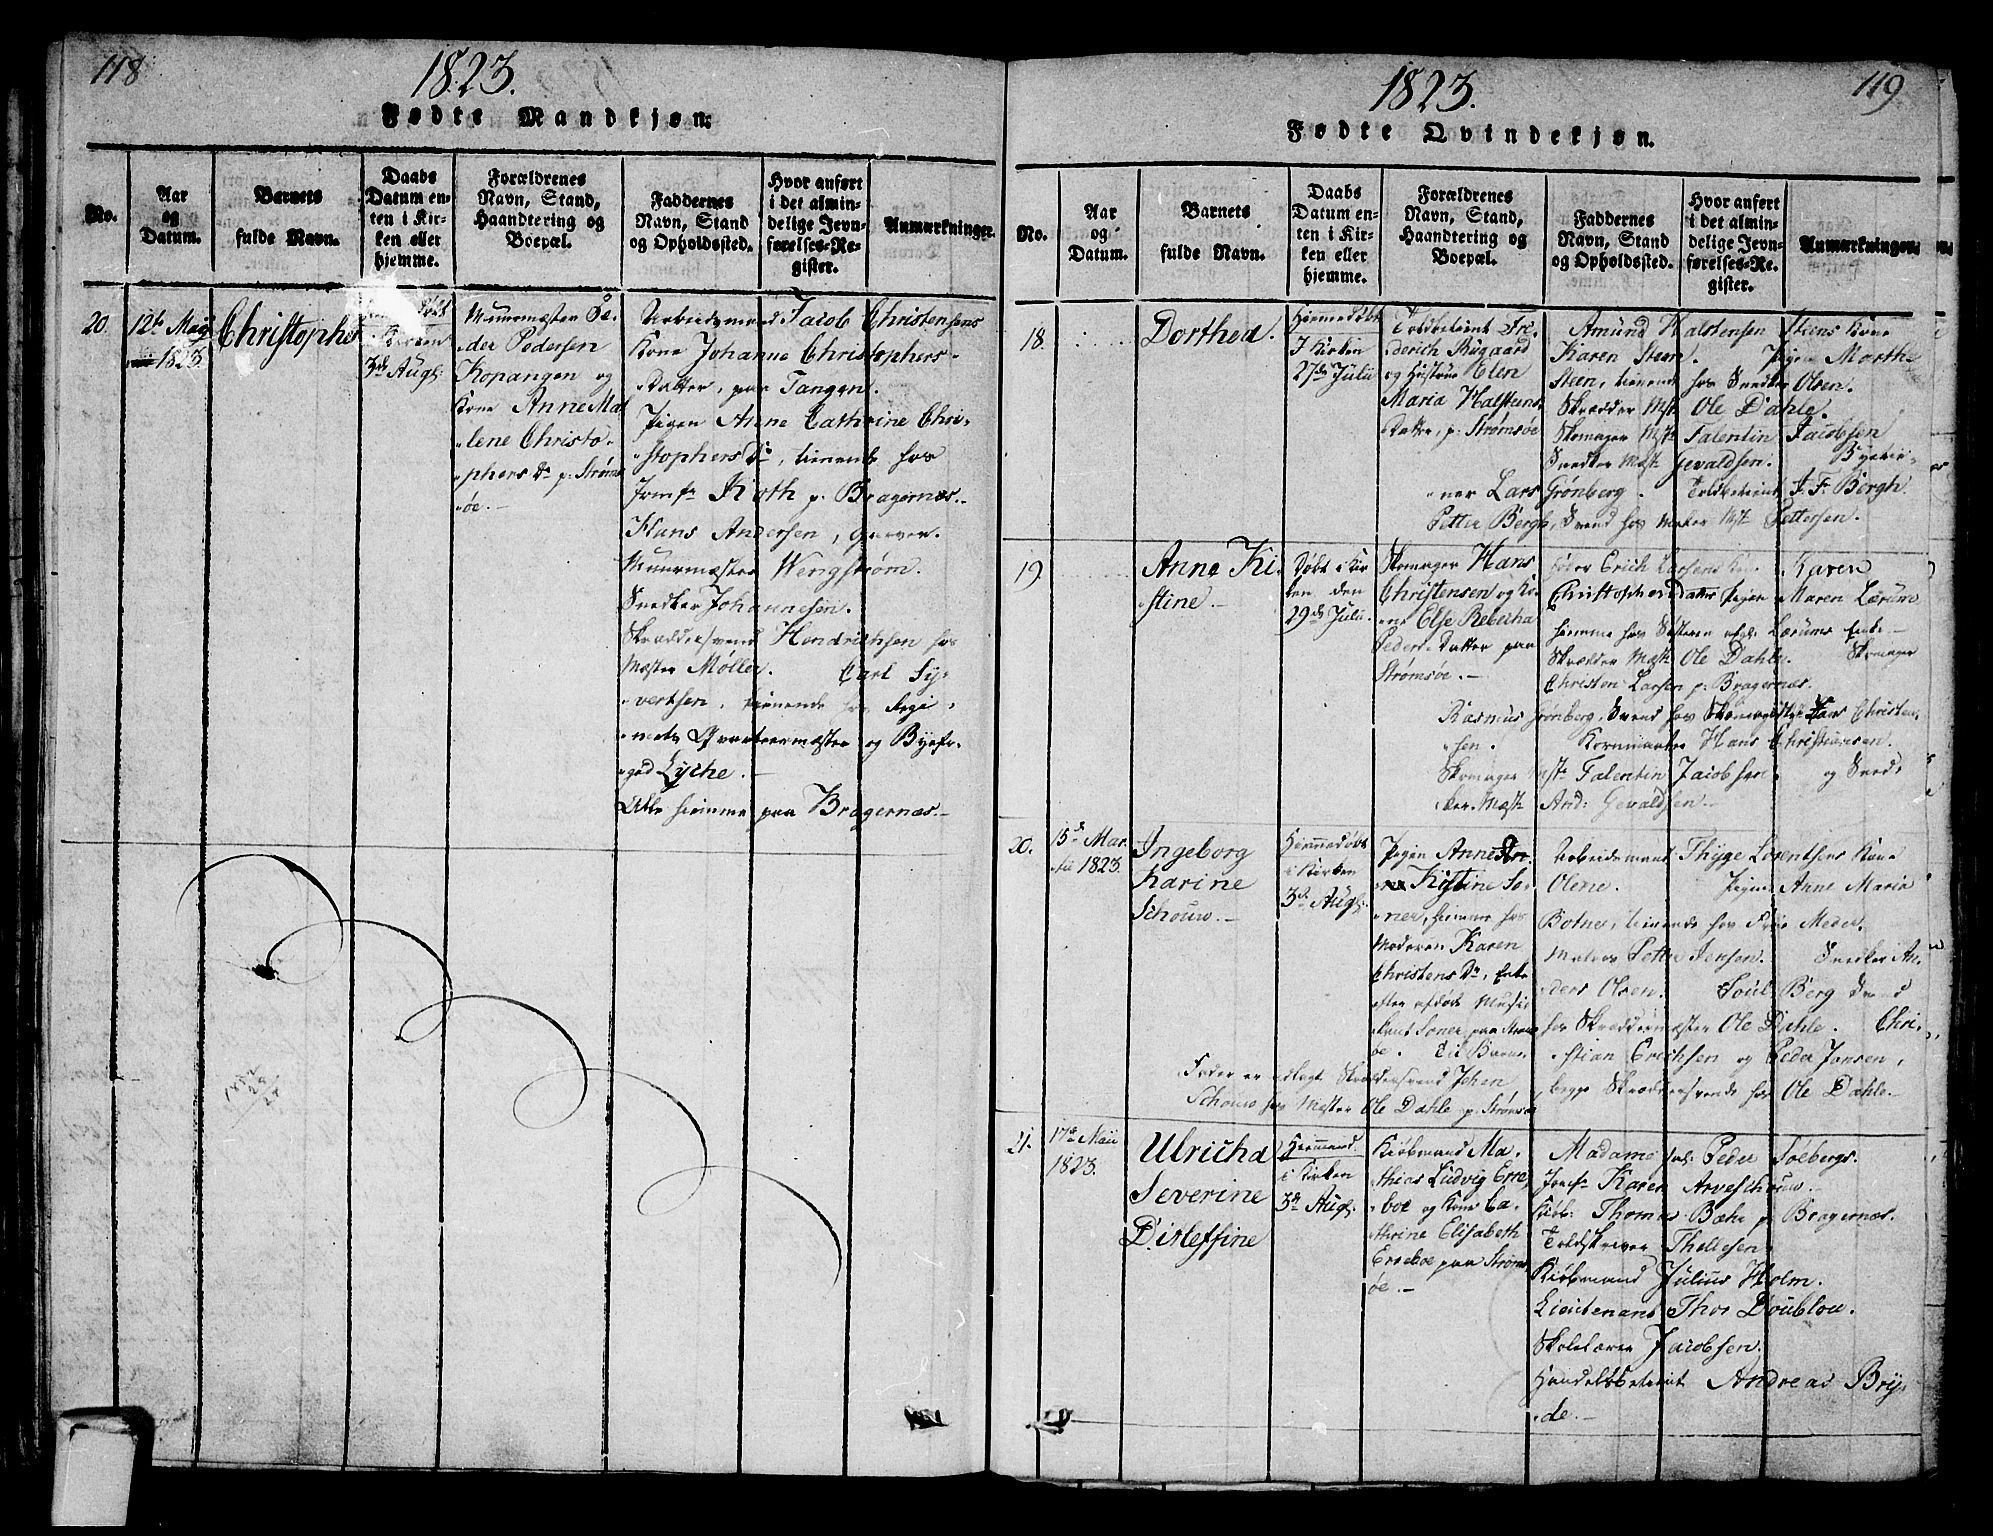 118
1823.
Fødte Mandkjøn.
No.
Aar
og
Datum.
Barnets
fulde Navn.
Daabs
Datum en-
ten i Kir-
ken eller
hjemme.
Forældrenes
Navn, Stand,
Haandtering og
Boepæl.
Faddernes
Navn, Stand
og Opholdssted.
Hvor anført
i det almin-
delige Jevn-
førelses-Re-
gister.
Anmærkninger.
20.
12te Maij
1823.
Christopher
Kirken
3die Augs.
Muurmester Pe-
der Pedersen
Kopangen og
Kone Anne Ma-
lene Christo-
phers Dr. p. Strøms-
øe.
Arbeidsmand Jacob Christensens
Kone Johanne Christophers-
Datter, paa Tangen.
Pigen Anne Cathrine Chri-
stophers Dr, tienende hos
Jomfr. Kioth p. Bragernæs.
Hans Andersen, Garver.
Muurmæster Wengstrøm.
Snedker Johannesen.
Skrædersvend Hendrichsen hos
Mæster Møller. Carl Sy-
vertsen, tienende hos Regi-
ments Qvarteermæster og Byefo-
ged Lyche.
Alle hiemme paa Bragernæs.
119
1823.
Fødte Qvindekjøn.
No.
Aar
og
Datum.
Barnets
fulde Navn.
Daabs
Datum en-
ten i Kir-
ken eller
hjemme.
Forældrenes
Navn, Stand,
Haandtering og
Boepæl.
Faddernes
Navn, Stand
og Opholdssted.
Hvor anført
i det almin-
delige Jevn-
førelses-Re-
gister.
Anmærkninger.
18.
Dorthea.
Hiemmedøbt
I Kirken
27de Julii
Toldbetient Fri-
derich Bugaard
og Hustrue Elen
Maria Halstens
Datter, p. Strømsøe
Amund Halstensen Steens Kone
Karen Steen. Pigen Marthe
Steen, tienende hos Snedker Olsen.
Skrædder Mst. Ole Dahle.
Skomager Mstr Falentin Jacobsen
Snedker Mæst. Gevaldsen. Byetie-
ner Lars Grønberg. Toldbetient J. F. Bergh.
Petter Bergh, Svend hos Maler Mst. Pettersen.
19.
Anne Ki-
stine.
Døbt i Kir-
ken den
29de Julii
Skomager Hans
Christensen og Ko-
ne Else Rebecha
Peders-Datter paa
Strømsøe.
Erich Larsens Karen
Christophersdatter Pigen Maren Lærum
hiemme hos Lærums Enke
Skrædder Mæst. Ole Dahle. Skomager
Christen Larsen p. Bragernæs.
Rasmus Grønberg, Svend hos Hans Christen-
sen. Hans Christiansen.
Skomager Mstr Falentin Jacobsen og Sned-
ker Mæst. And: Gevaldsen.
20.
15de Mar-
tii 1823.
Ingeborg
Karine
Schouw.
Hiemmedøbt
i Kirken
3de Augs.
Pigen Anne
Kistine So-
ner, hiemme hos
Moderen Karen
Christens Dr, Enke
efter afdøde Musi-
kant Soner paa Strøms-
øe. Til Barne-
Fader er udlagt Skræddersvend Johan
Schouw hos Mæster Ole Dahle p. Strømsøe
Arbeidsmand Thyge Lorentsens Kone
Olene. Pigen Anne Maria
Botner, tienende hos Meder.
Petter Jensen. Snedker An-
ders Olsen. Poul Berg Svend
hos Skræddermæster Ole Dahle. Chri-
stian Erichsen og Peder Jansen,
begge Skræddersvende hos Ole Dahle.
21.
17de Maii
1823.
Ulricha
Severine
Ditleffine
Hiemmed.
i Kirken
3de Augs.
Kiøbmand Ma-
thias Ludvig Erre-
boe og Kone Ca-
thrine Elisabeth
Erreboe paa Strøms-
øe.
Madame sal: Peder Solbergs.
Jomfr. Karen Arveschouw.
Kiøb: Thomas Bæhr p. Bragernæs.
Toldskriver Thellesen
Kiøbmand Julius Holm.
Lieutenant Thor Doublou.
Skolelærer Jacobsen.
Handelsbetient Andreas Bry-
de.